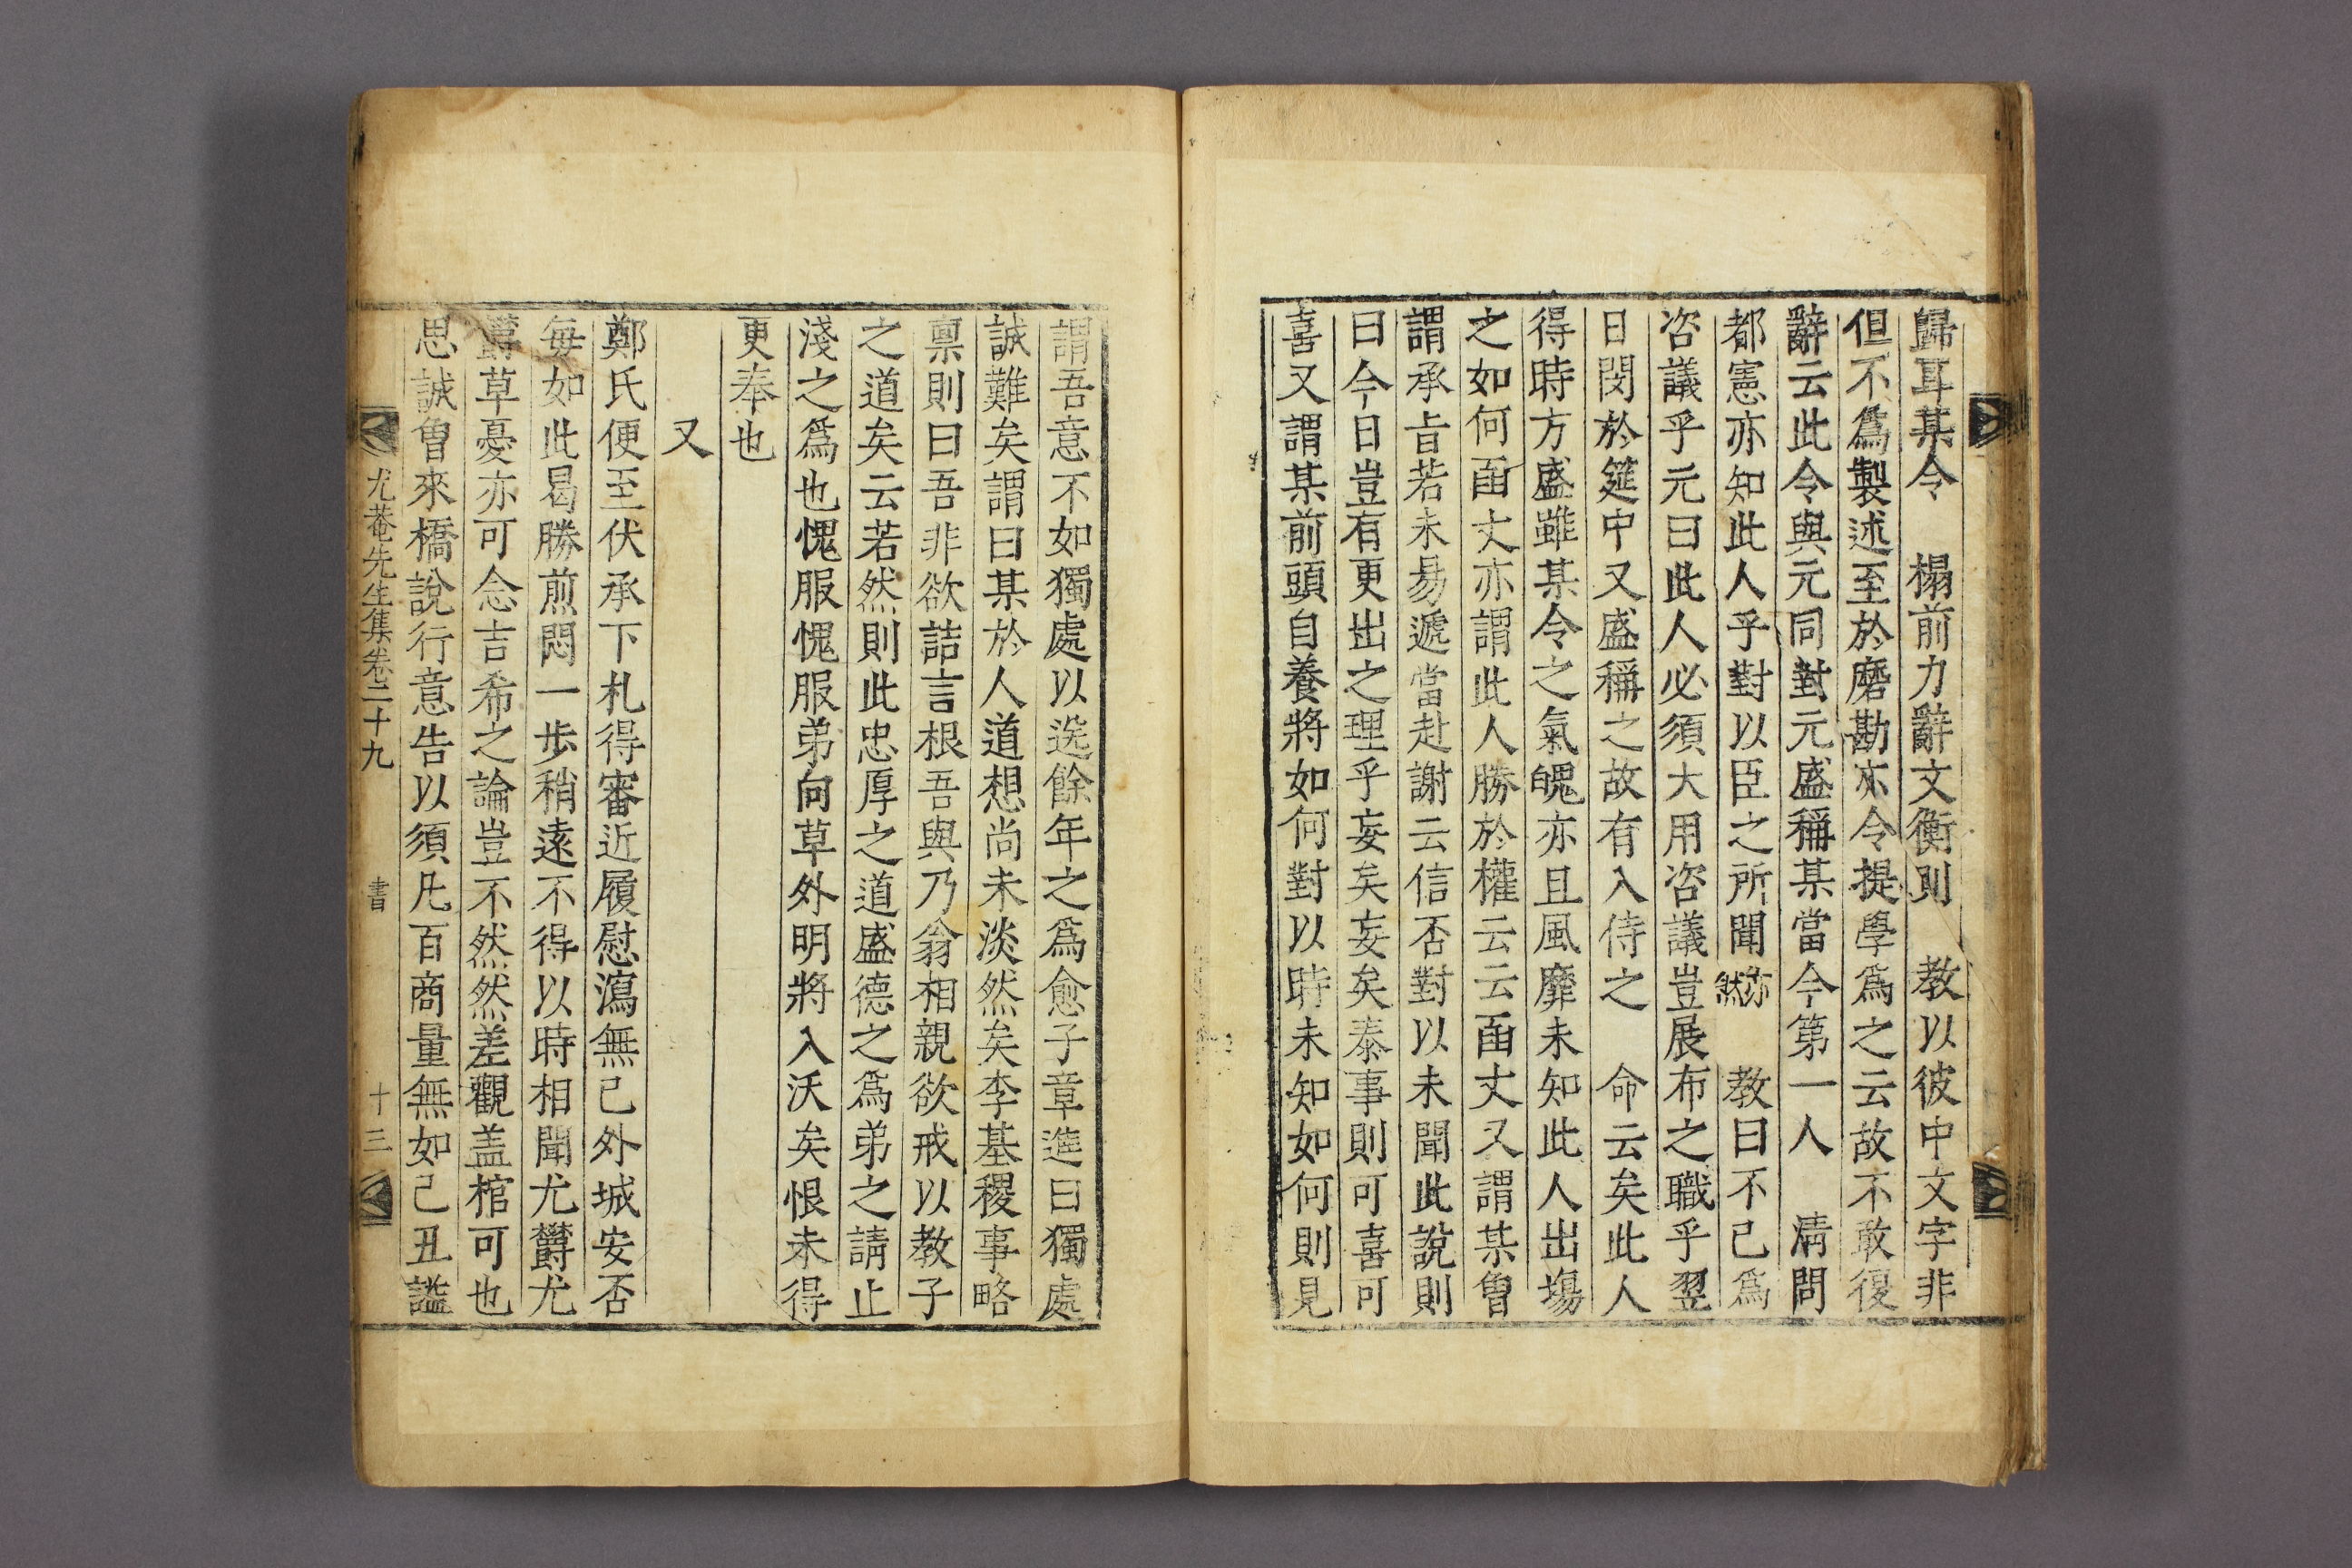 歸耳某令　榻前力辭文衡則　教以彼中文字非
但不爲製述至於磨勘亦令提學爲之云故不敢復
辭云此令與元同對元盛稱某當今第一人　淸問
都憲亦知此人乎對以臣之所聞亦然　教曰不已爲
咨議乎元曰此人必須大用咨議豈展布之職乎翌
日閔於筵中又盛稱之故有入侍之　命云矣此人
得時方盛雖某令之氣魄亦且風靡未知此人出場
之如何函丈亦謂此人勝於權云云函丈又謂某曾
謂承旨若未易遞當赴謝云信否對以未聞此說則
曰今日豈有更出之理乎妄矣妄矣泰事則可喜可
喜又謂某前頭自養將如何對以時未知如何則見
謂吾意不如獨處以送餘年之爲愈子章進曰獨處
誠難矣謂曰某於人道想尚未淡然矣李基稷事略
稟則曰吾非欲詰言根吾與乃翁相親欲戒以教子
之道矣云若然則此忠厚之道盛德之爲弟之請止
淺之爲也愧服愧服弟向草外明將入沃矣恨未得
更奉也
又
鄭氏便至伏承下札得審近履慰瀉無已外城安否
每如此曷勝煎悶一步稍遠不得以時相聞尤欝尤
欝草憂亦可念吉希之論豈不然然差觀盖棺可也
思誠曾來橋說行意告以須凡百商量無如己丑謚
尤菴先生集卷二十九　書　十三